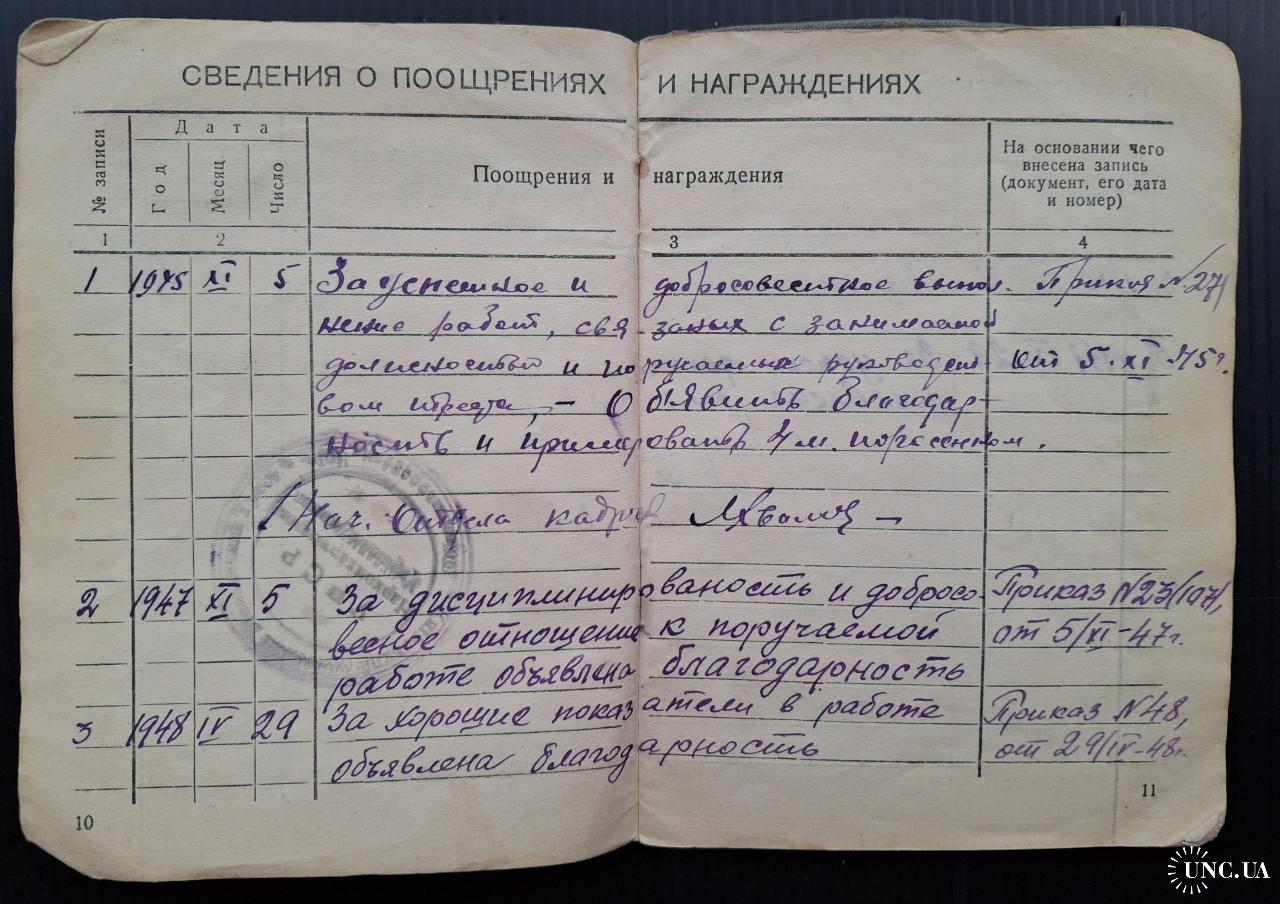 СВЕДЕНИЯ О ПООЩРЕНИЯХ И НАГРАЖДЕНИЯХ
№ записи
Дата
Год
Месяц
Число
Поощрения и награждения
На основании чего
внесена запись
(документ, его дата
и номер)
1 2 3 4
1 1945 XI 5 За успешное и добросовестное выпол. Приказ №271
нение работ, свя занных с занимаемой
должностью и поручаемых руководст от 5.XI 45г.
вом треста, – Объявить благодар-
ность и примировать 4 м. поросенком.
Нач. Отдела кадров
2 1947 XI 5 За дисциплинированость и добросо- Приказ №23/107/,
весное отношение к поручаемой от 5/XI-47г.
работе объявлена благодарность
3 1948 IV 29 За хорошие показатели в работе Приказ №48,
объявлена благодарность от 29/IV-48г.
10
11
UNC.UA